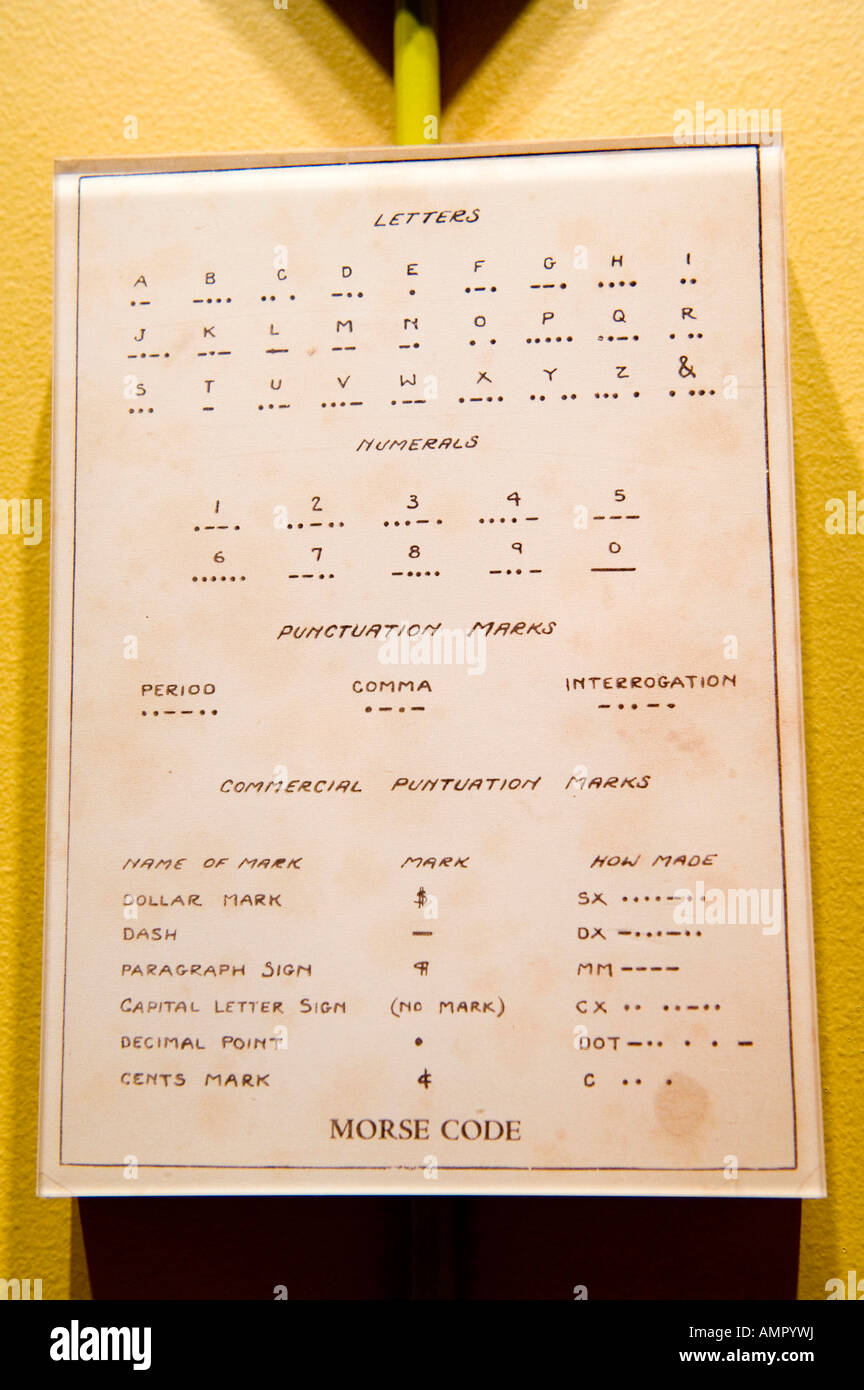 LETTERS
A B C D E F G H I
•— —••• •• • —•• • •—• ——• •••• ••
J K L M N O P Q R
—•—• —•— — —— —• • • ••••• ••—• • ••
S T U V W X Y Z &
••• — ••— •••— •—— •—•• •• •• ••• • • •••
NUMERALS
1 2 3 4 5
•——• ••—•• •••—• ••••— ———
6 7 8 9 0
•••••• ——•• —•••• —••— —
PUNCTUATION MARKS
PERIOD COMMA INTERROGATION
••——•• •—•— —••—•
COMMERCIAL PUNTUATION MARKS
NAME OF MARK MARK HOW MADE
DOLLAR MARK $ SX ••••—••
DASH — DX —•••—••
PARAGRAPH SIGN ¶ MM ————
CAPITAL LETTER SIGN (NO MARK) CX •• ••—••
DECIMAL POINT • DOT —•• • • —
CENTS MARK ¢ C •• •
MORSE CODE
alamy
Image ID: AMPYWJ
www.alamy.com